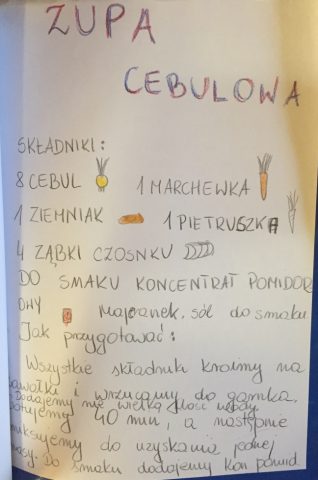 ZUPA
CEBULOWA
SKŁADNIKI:
8 CEBUL 1 MARCHEWKA
1 ZIEMNIAK 1 PIETRUSZKA
4 ZĄBKI CZOSNKU
DO SMAKU KONCENTRAT POMIDOR
OWY Majeranek, sól do smaku
Jak przygotować:
Wszystkie składniki kroimy na
kawałki i wrzucamy do garnka,
- Dodajemy nie wielką ilość wody
gotujemy 40 min, a następnie
miksujemy do uzyskania jednej
masy. Do smaku dodajemy kon pomid